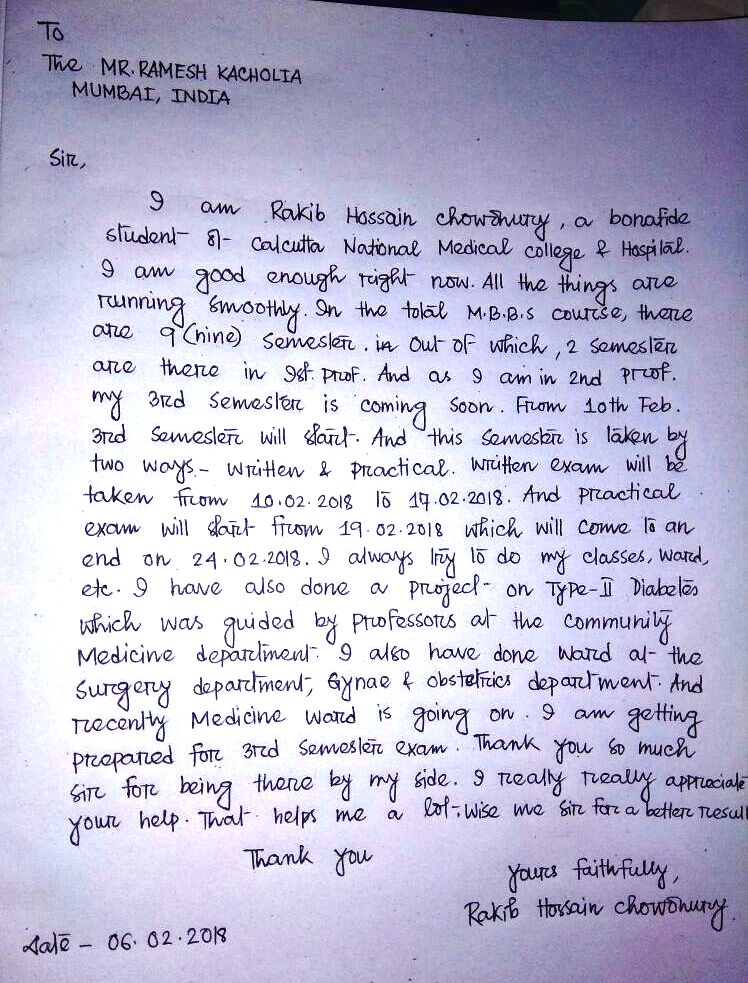 To
The MR. RAMESH KACHOLIA
MUMBAI, INDIA
Sir,
I am Rakib Hossain Chowdhury, a bonafide
student of Calcutta National Medical college & Hospital.
I am good enough right now. All the things are
running smoothly. In the total M.B.B.S course, there
are 9 (nine) semester. in Out of which, 2 semester
are there in 1st. prof. And as I am in 2nd prof.
my 3rd semester is coming soon. From 10th Feb.
3rd semester will start. And this semester is taken by
two ways - written & practical. written exam will be
taken from 10.02.2018 to 17.02.2018. And practical
exam will start from 19.02.2018 which will come to an
end on 24.02.2018. I always try to do my classes, ward,
etc. I have also done a project on Type-II Diabetes
which was guided by professors at the community
Medicine department. I also have done ward at the
surgery department, Gynae & obstetrics department. And
recently Medicine ward is going on. I am getting
prepared for 3rd semester exam. Thank you so much
sir for being there by my side. I really really appreciate
your help. That helps me a lot. Wise me sir for a better result
Thank you
Yours faithfully,
Rakib Hossain Chowdhury.
Date - 06.02.2018